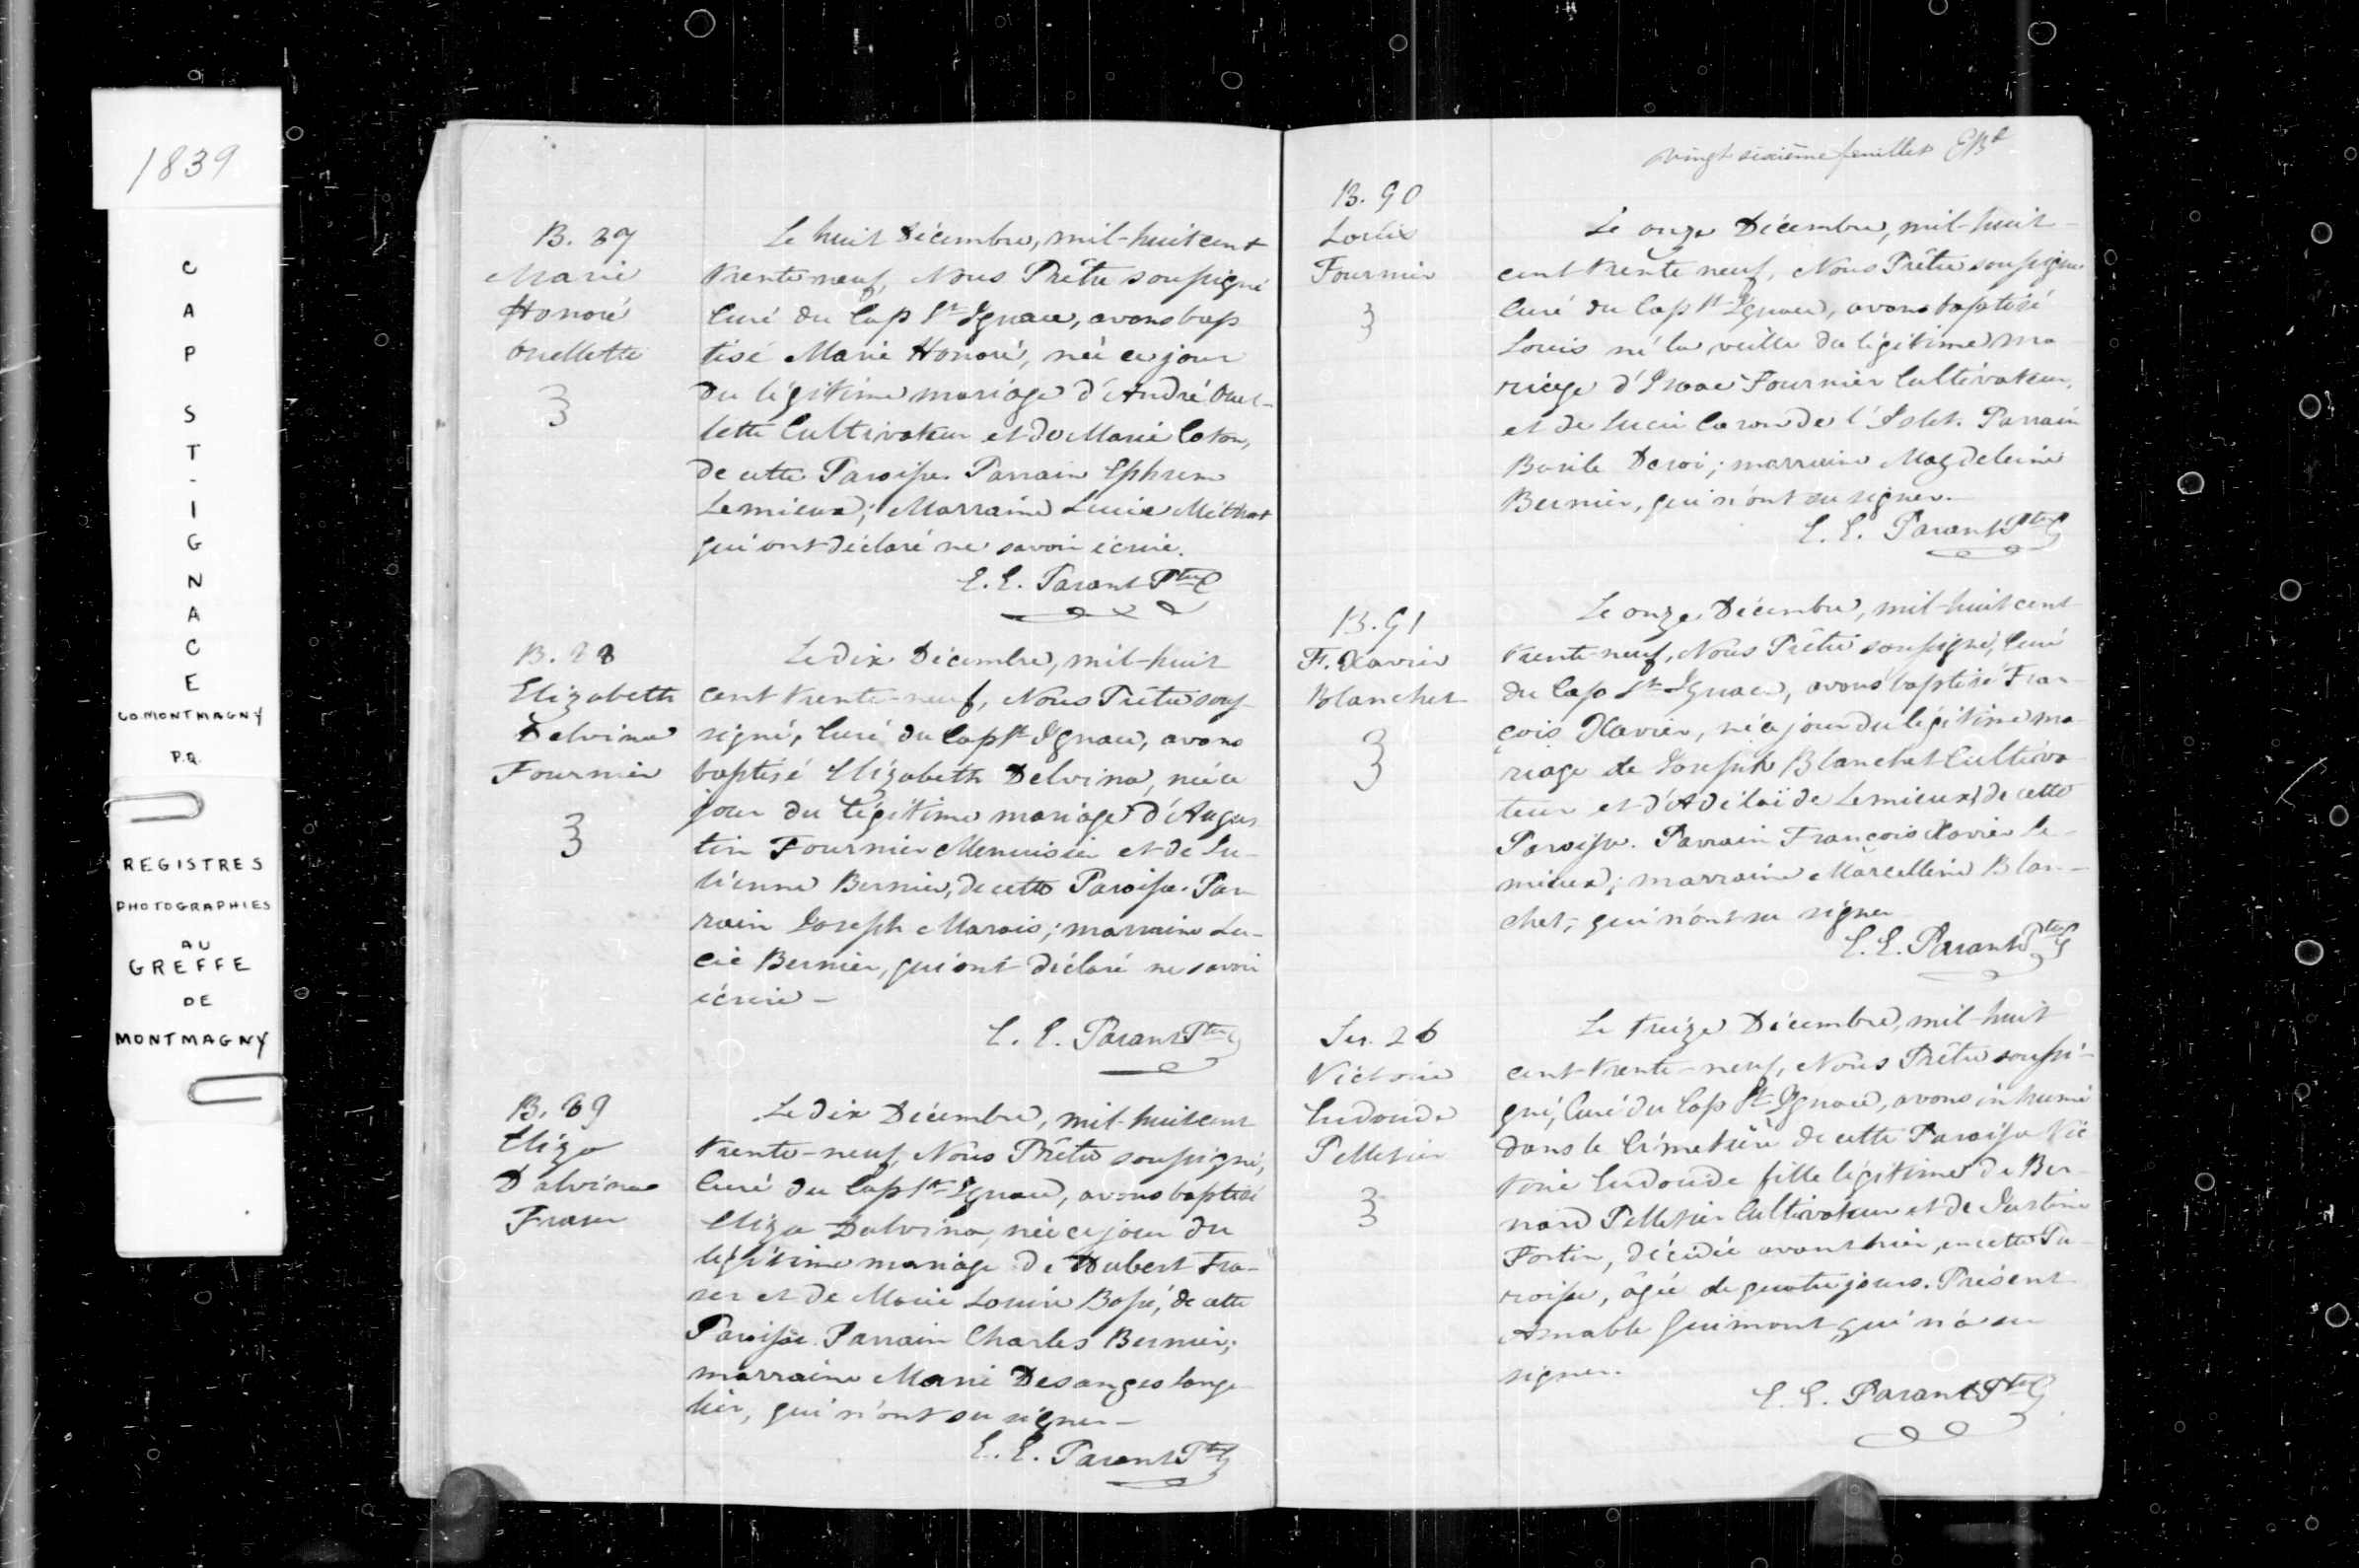 1839
CAP ST-IGNACE
CO. MONTMAGNY
P.Q.
REGISTRES
PHOTOGRAPHIES
AU
GREFFE
DE
MONTMAGNY
B. 87
Marie
Honoré
Ouellette
3
Le huit Décembre, mil-huit cent
trente-neuf, Nous Prêtre soussigné
Curé du Cap St Ignace, avons bap
tisé Marie Honoré, née ce jour
du légitime mariage d'André Ouel-
lette Cultivateur et de Marie Coton,
de cette Paroisse. Parrain Ephrem
Lemieux; Marraine Lucie Méthot
qui ont déclaré ne savoir écrire.
E. E. Parant Ptre C
B. 88
Elizabeth
Delvina
Fournier
3
Le dix Décembre, mil-huit
cent trente-neuf, Nous Prêtre sous-
signé, Curé du Cap St Ignace, avons
baptisé Elizabeth Delvina, née ce
jour du légitime mariage d'Augus
tin Fournier Menuisier et de Lu-
cienne Bernier, de cette Paroisse. Par
rain Joseph Marois; marraine Lu-
cie Bernier, qui ont déclaré ne savoir
écrire -
E. E. Parant Ptre C
B. 89
Eliza
Dalvina
Fraser
Le dix Décembre, mil-huit cent
trente-neuf, Nous Prêtre soussigné,
Curé du Cap St Ignace, avons baptisé
Eliza Dalvina, née ce jour du
légitime mariage de Hubert Fra-
ser et de Marie Louise Bossé, de cette
Paroisse. Parrain Charles Bernier;
marraine Marie Desanges Lange
lier, qui n'ont su signer -
E. E. Parant Ptre C
Vingt sixième feuillet
B. 90
Louis
Fournier
3
Le onze Décembre, mil-huit-
cent trente neuf, Nous Prêtre soussigné
Curé du Cap St Ignace, avons baptisé
Louis né la veille du légitime ma
riage d'Isaac Fournier Cultivateur,
et de Lucie Caron de l'Islet. Parrain
Basile Deroi; marraine Magdeleine
Bernier, qui n'ont su signer.
E. E. Parant Ptre C
B. 91
F. Xavier
Blanchet
3
Le onze Décembre, mil-huit cent
trente-neuf, Nous Prêtre soussigné, Curé
du Cap St Ignace, avons baptisé Fran-
çois Xavier, né ce jour du légitime ma-
riage de Joseph Blanchet Cultiva-
teur et d'Adélaïde Lemieux, de cette
Paroisse. Parrain François Xavier Le-
mieux; marraine Marcelline Blan-
chet, qui n'ont su signer
E. E. Parant Ptre C
Sep. 26
Victoire
Ludoude
Pelletier
3
Le treize Décembre, mil-huit
cent trente-neuf, Nous Prêtre soussi-
gné, Curé du Cap St Ignace, avons inhumé
dans le Cimetière de cette Paroisse Vic
toire Ludoude fille légitime de Ber-
nard Pelletier Cultivateur et de Justine
Fortin, décédée avant hier, en cette Pa-
roisse, âgée de quatre jours. Présent
Amable Guimont qui n'a su
signer.
E. E. Parant Ptre C